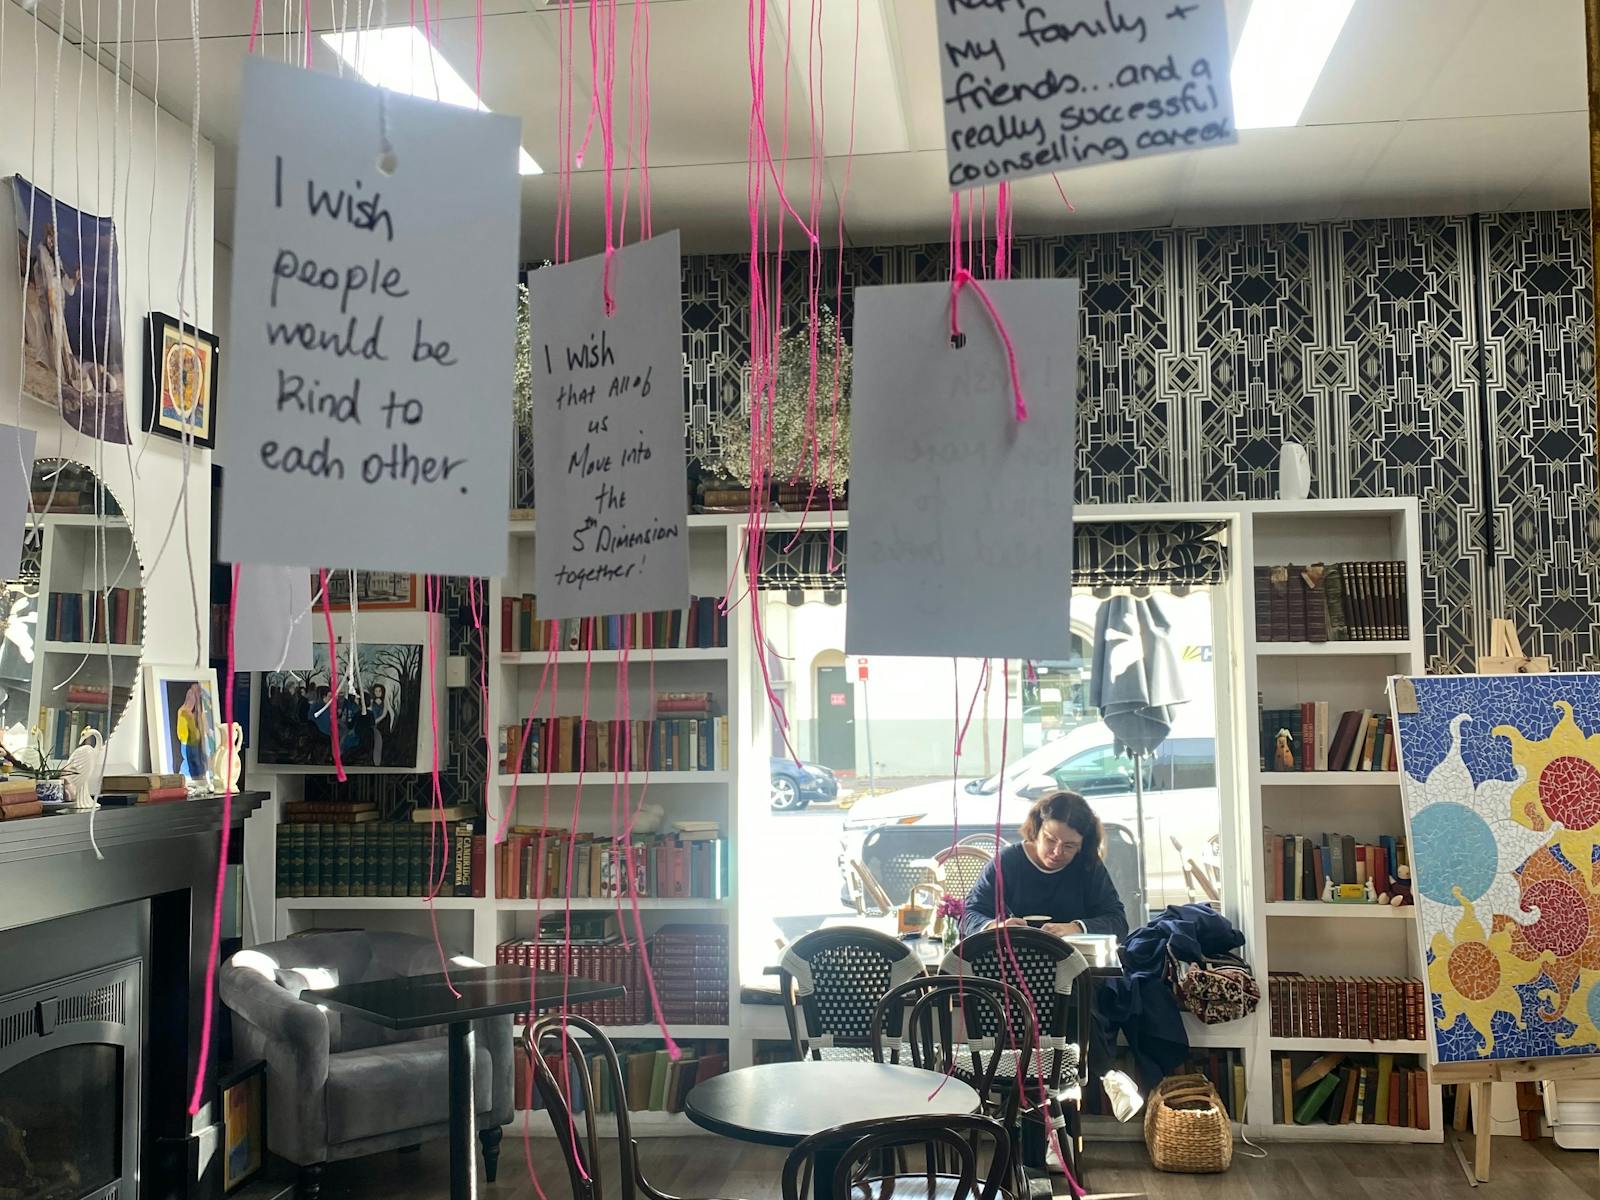 My family +
friends...and a
really successful
counselling career.
I wish
people
would be
kind to
each other.
I wish
that All of
us
Move into
the
5th Dimension
together!
I wish
read books
CAMBRIDGE
ENCYCLOPEDIA